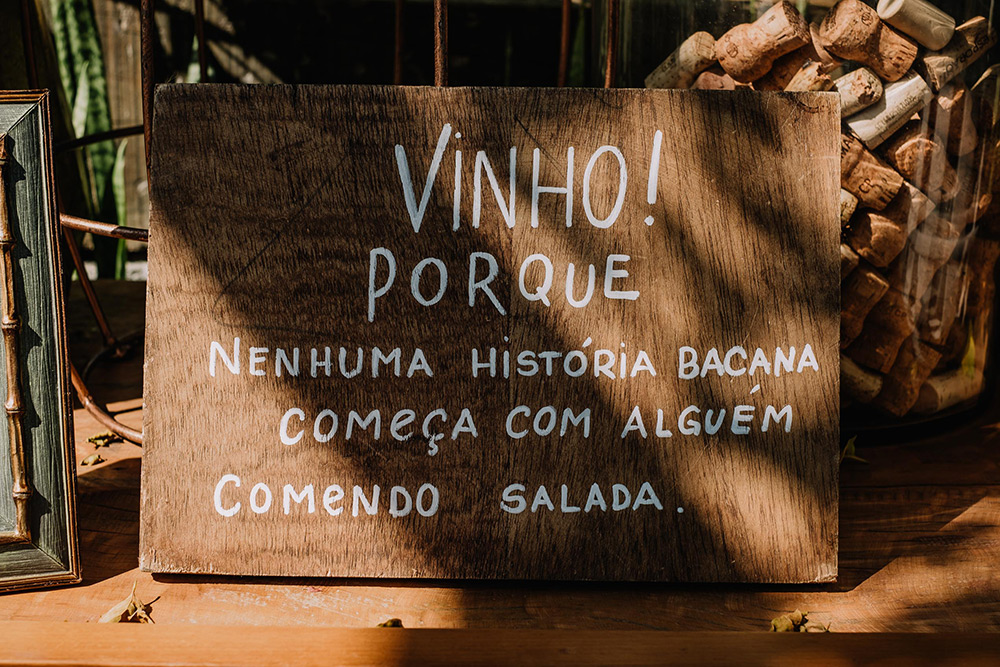 VINHO!
PORQUE
NENHUMA HISTÓRIA BACANA
COMEÇA COM ALGUÉM
COMENDO SALADA.